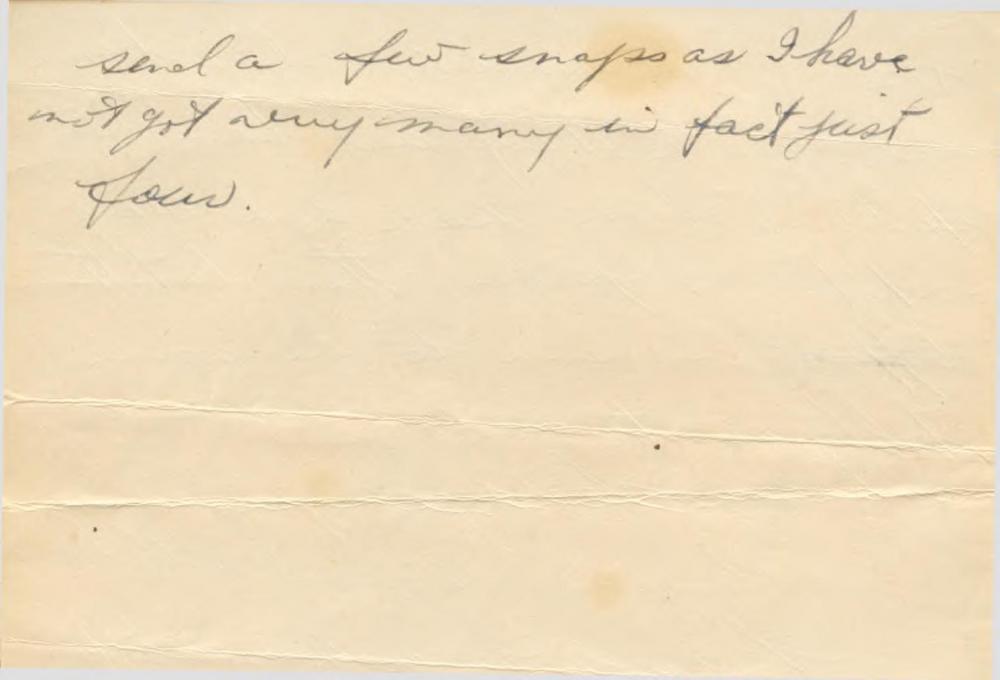 send a few snaps as I have
not got very many in fact just
four.